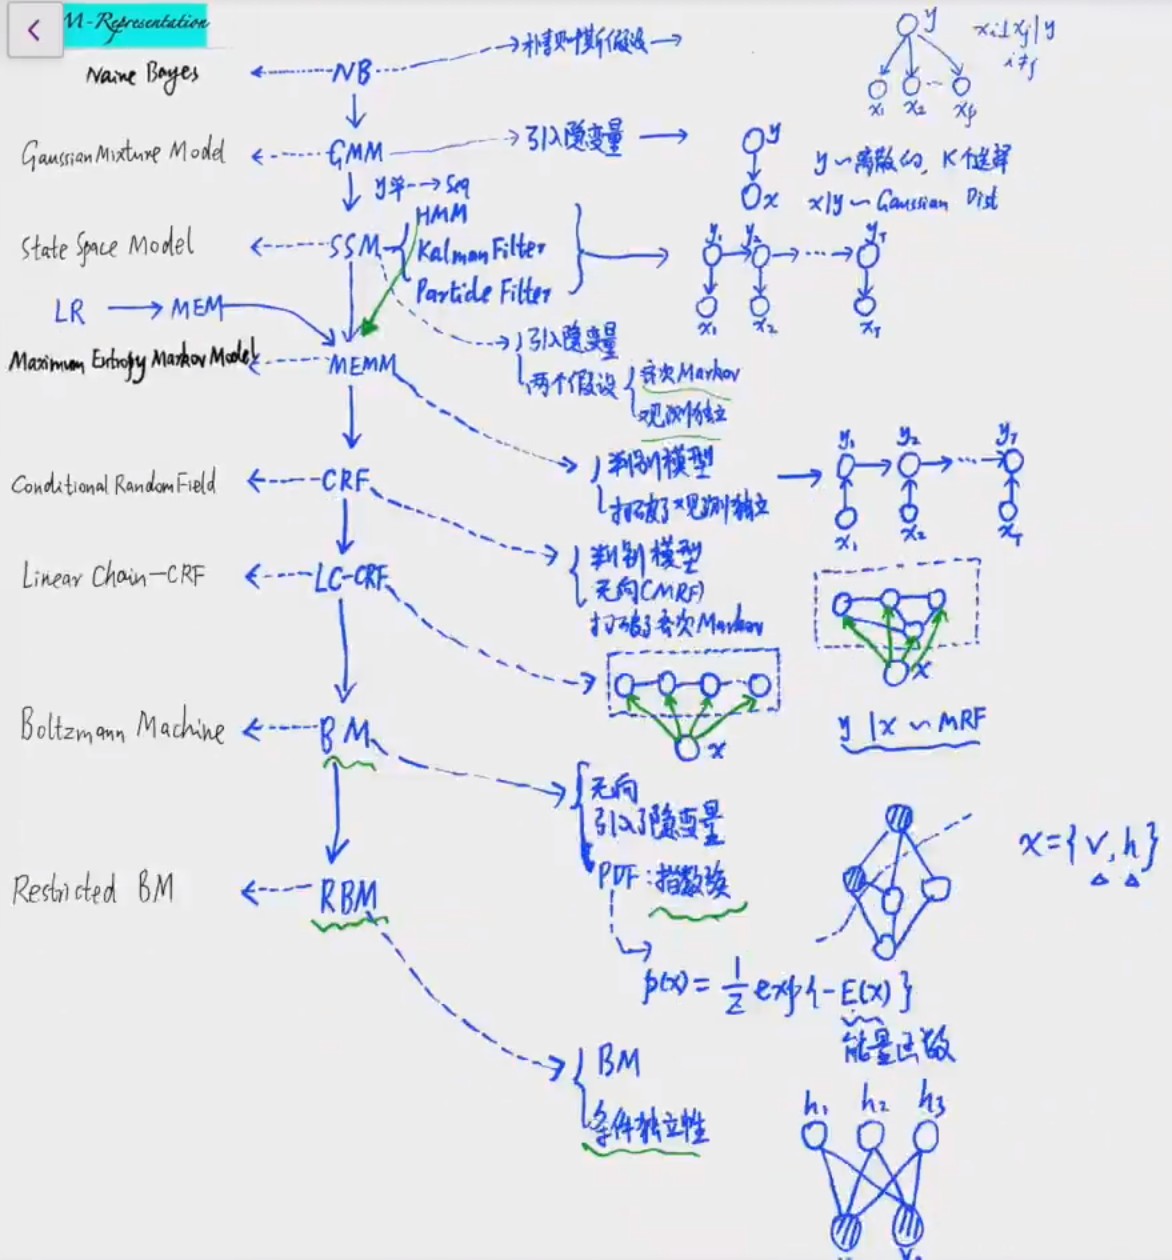 M-Representation
Naive Bayes
NB
朴素贝叶斯假设
y
xi⊥xj|y
i≠j
x₁ x₂ xp
Gaussian Mixture Model
GMM
引入隐变量
y
x
y ~ 离散的, K个选择
x|y ~ Gaussian Dist
y单 → Seq
State Space Model
SSM
HMM
Kalman Filter
Particle Filter
y₁ y₂ yT
x₁ x₂ xT
LR → MEM
引入隐变量
两个假设
齐次Markov
观测独立
Maximum Entropy Markov Model
MEMM
判别模型
打破了观测独立
y₁ y₂ yT
x₁ x₂ xT
Conditional Random Field
CRF
判别模型
无向(MRF)
打破了齐次Markov
x
y|x ~ MRF
Linear Chain-CRF
LC-CRF
x
Boltzmann Machine
BM
无向
引入了隐变量
PDF:指数族
x={v, h}
p(x) = 1/Z exp{-E(x)}
能量函数
Restricted BM
RBM
BM
条件独立性
h₁ h₂ h₃